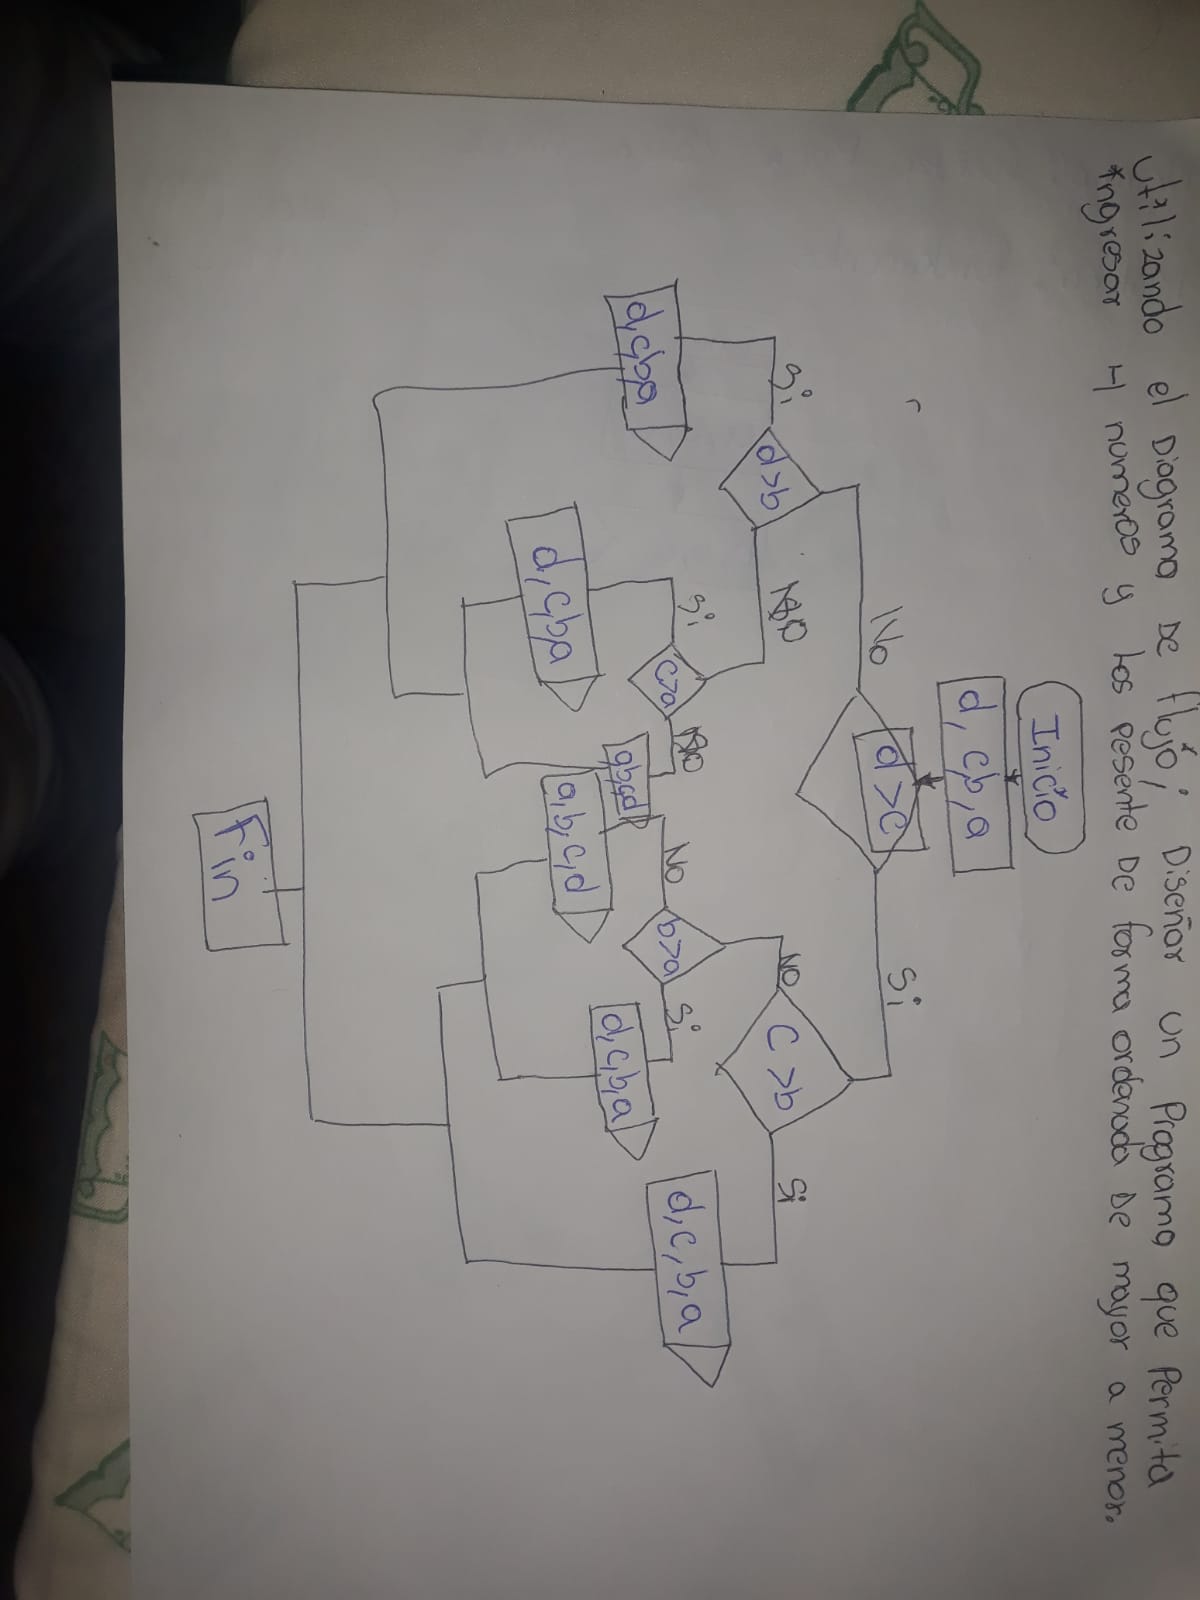 Utilizando el Diagrama De flujo; Diseñar un Programa que Permita
*ingresar 4 numeros y los pesente De forma ordenada De mayor a menor.
Inicio
d, c,b,a
d>c
No
Si
d>b
C>b
Si
No
No
Si
d,c,b,a
c>a
b>a
d,c,b,a
Si
No
No
Si
d,c,b,a
a,b,c,d
d,c,b,a
a,b,c,d
Fin